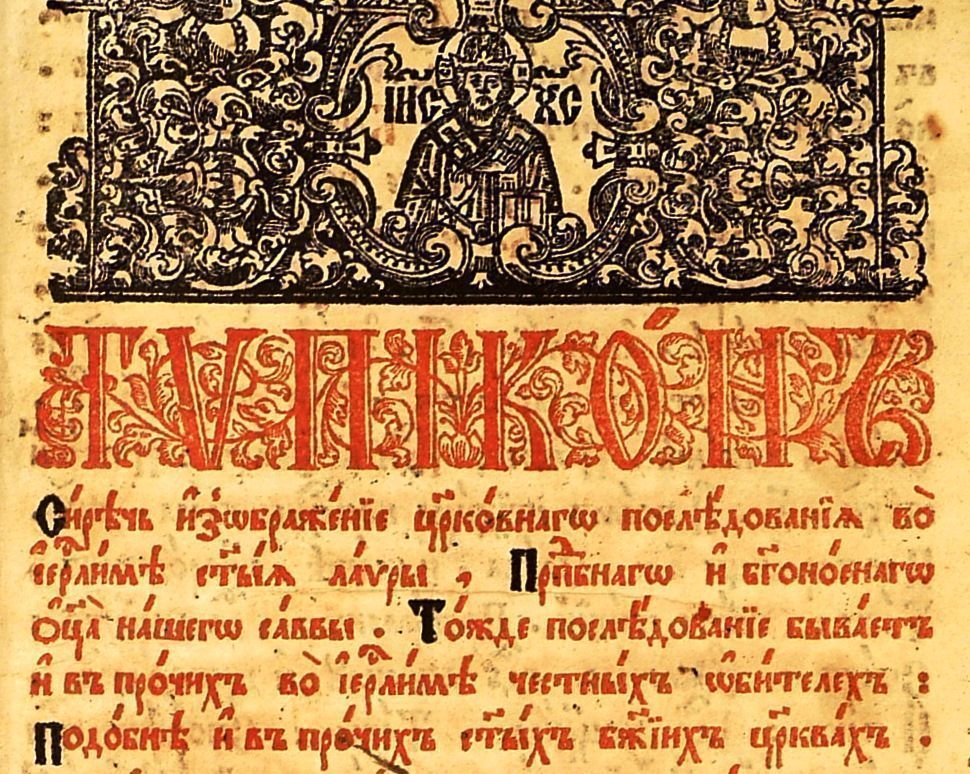 І҆И҃С Х҃С
ТѴПІКО́НЪ
Си́рѣчь и҆з̾ѡбраже́нїе цр҃ко́внагѡ послѣ́дованїѧ во̀
і҆ерⷭ҇ли́мѣ ст҃ы́ѧ ла́ѵры , Прпⷣбнагѡ и҆ бг҃оно́снагѡ
ѻ҆ц҃а̀ на́шегѡ са́ввы . То́жде послѣ́дованїе быва́етъ
и҆ въ про́чихъ во̀ і҆ерⷭ҇ли́мѣ честны́хъ ѡ҆би́телехъ :
Подо́бнѣ и҆ въ про́чихъ ст҃ы́хъ бж҃їихъ цр҃квахъ .